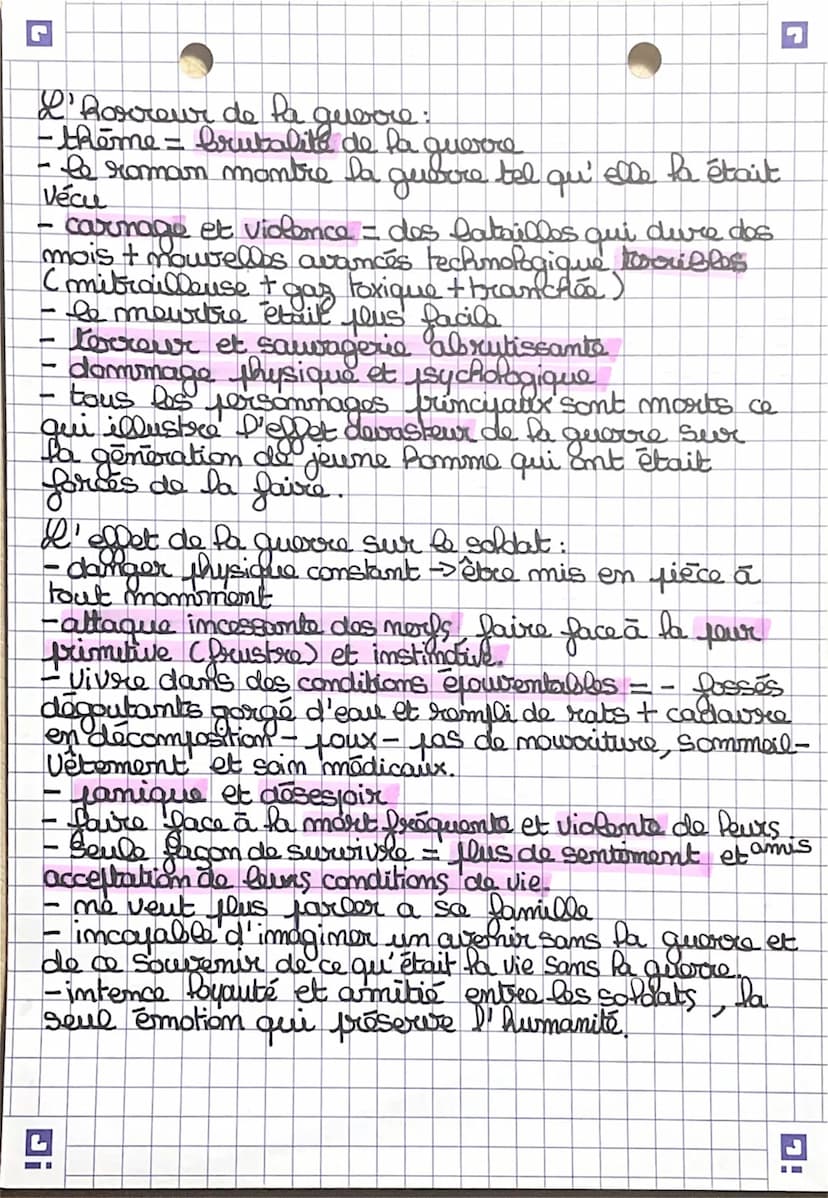 L'Horreur de la guerre :
- thème = brutalité de la guerre
- le roman montre la guerre tel qu'elle la était
vécu
- carnage et violence = des batailles qui dure des
mois + nouvelles avancés technologique terribles
(mitrailleuse + gaz toxique + tranchée)
- le meurtre était plus facile
- terreur et sauvagerie abrutissante
- dommage physique et psychologique
- tous les personnages principaux sont morts ce
qui illustre l'effet devasteur de la guerre sur
la génération de jeune homme qui ont était
forcés de la faire.
L'effet de la guerre sur le soldat :
- danger physique constant -> être mis en pièce à
tout momment
- attaque incessante des nerfs faire face à la peur
primitive (frustre) et instinctive.
- vivre dans des conditions épouventables = - fossés
dégoutants gorgé d'eau et rempli de rats + cadavre
en décomposition - poux - pas de nourriture, sommeil -
vêtement et soin médicaux.
- panique et désespoir
- faire face à la mort fréquente et violente de leurs
amis
- Seule façon de survivre = plus de sentiment et
acceptation de leurs conditions de vie.
- ne veut plus parler a sa famille
- incapable d'imaginer un avenir sans la guerre et
de ce souvenir de ce qu'était la vie sans la guerre.
- intence loyauté et amitié entre les soldats, la
seul émotion qui préserve l'humanité.